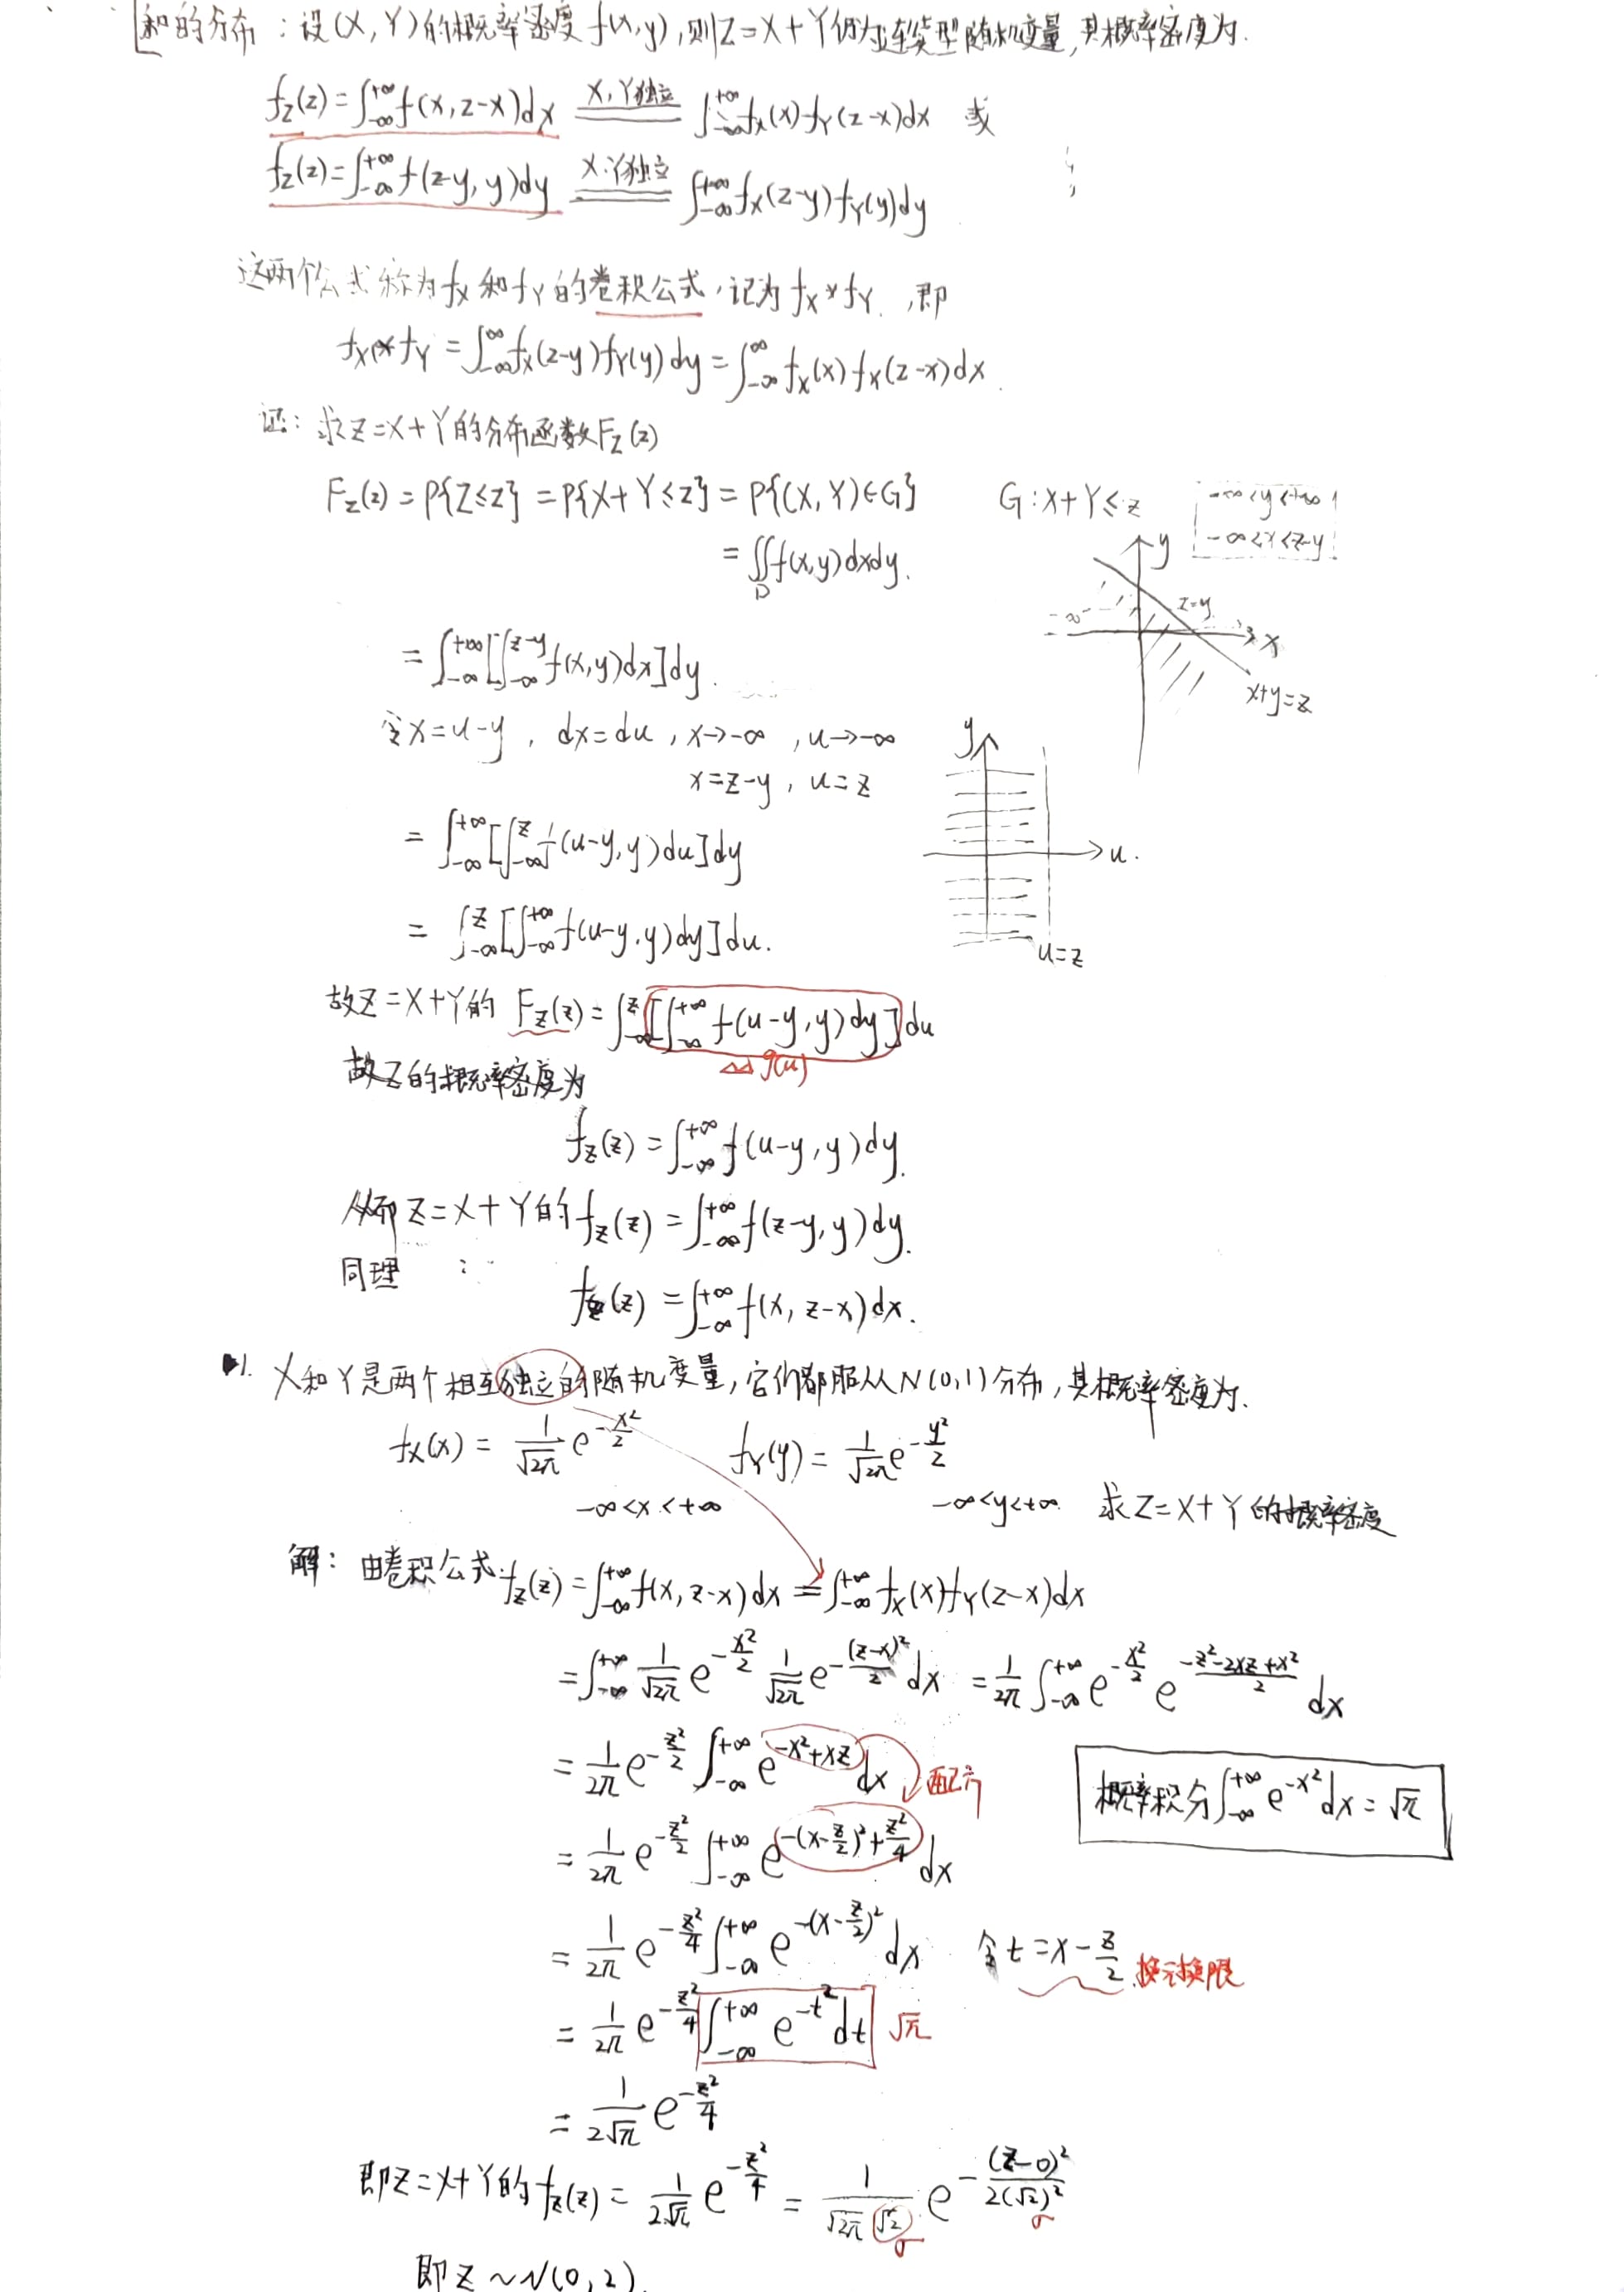 和的分布：设(X,Y)的概率密度f(x,y),则Z=X+Y仍为连续型随机变量,其概率密度为.
f_Z(z)=∫_{-∞}^{+∞}f(x,z-x)dx X,Y独立 ∫_{-∞}^{+∞}f_X(x)f_Y(z-x)dx 或
f_Z(z)=∫_{-∞}^{+∞}f(z-y,y)dy X,Y独立 ∫_{-∞}^{+∞}f_X(z-y)f_Y(y)dy
这两个公式称为f_X和f_Y的卷积公式,记为f_X*f_Y.,即
f_X*f_Y=∫_{-∞}^{∞}f_X(z-y)f_Y(y)dy=∫_{-∞}^{∞}f_X(x)f_X(z-x)dx.
证：求Z=X+Y的分布函数F_Z(z)
F_Z(z)=P{Z≤z}=P{X+Y≤z}=P{(X,Y)∈G} G:X+Y≤z -∞<y<+∞
=∬_D f(x,y)dxdy. -∞<x<z-y
y
z-y
-∞
x
=∫_{-∞}^{+∞}[∫_{-∞}^{z-y}f(x,y)dx]dy.
x+y=z
令x=u-y, dx=du, x→-∞, u→-∞
y
x=z-y, u=z
=∫_{-∞}^{+∞}[∫_{-∞}^{z}f(u-y,y)du]dy
u.
=∫_{-∞}^{z}[∫_{-∞}^{+∞}f(u-y,y)dy]du.
u=z
故Z=X+Y的 F_Z(z)=∫_{-∞}^{z}[∫_{-∞}^{+∞}f(u-y,y)dy]du
△△ g(u)
故Z的概率密度为
f_Z(z)=∫_{-∞}^{+∞}f(u-y,y)dy.
从而Z=X+Y的f_Z(z)=∫_{-∞}^{+∞}f(z-y,y)dy.
同理：
f_Z(z)=∫_{-∞}^{+∞}f(x,z-x)dx.
1. X和Y是两个相互独立的随机变量,它们都服从N(0,1)分布,其概率密度为.
f_X(x)=\frac{1}{\sqrt{2π}}e^{-\frac{x²}{2}} f_Y(y)=\frac{1}{\sqrt{2π}}e^{-\frac{y²}{2}}
-∞<x<+∞ -∞<y<+∞. 求Z=X+Y的概率密度
解：由卷积公式f_Z(z)=∫_{-∞}^{+∞}f(x,z-x)dx=∫_{-∞}^{+∞}f_X(x)f_Y(z-x)dx
=∫_{-∞}^{+∞}\frac{1}{\sqrt{2π}}e^{-\frac{x²}{2}}\frac{1}{\sqrt{2π}}e^{-\frac{(z-x)²}{2}}dx =\frac{1}{2π}∫_{-∞}^{+∞}e^{-\frac{x²}{2}}e^{-\frac{z²-2xz+x²}{2}}dx
=\frac{1}{2π}e^{-\frac{z²}{2}}∫_{-∞}^{+∞}e^{-x²+xz}dx 配方
概率积分∫_{-∞}^{+∞}e^{-x²}dx=√π
=\frac{1}{2π}e^{-\frac{z²}{2}}∫_{-∞}^{+∞}e^{-(x-\frac{z}{2})²+\frac{z²}{4}}dx
=\frac{1}{2π}e^{-\frac{z²}{4}}∫_{-∞}^{+∞}e^{-(x-\frac{z}{2})²}dx 令t=x-\frac{z}{2} 换元换限
=\frac{1}{2π}e^{-\frac{z²}{4}}∫_{-∞}^{+∞}e^{-t²}dt √π
=\frac{1}{2√π}e^{-\frac{z²}{4}}
即Z=X+Y的f_Z(z)=\frac{1}{2√π}e^{-\frac{z²}{4}}=\frac{1}{\sqrt{2π}√2}e^{-\frac{(z-0)²}{2(√2)²}}
σ σ
即Z~N(0,2).